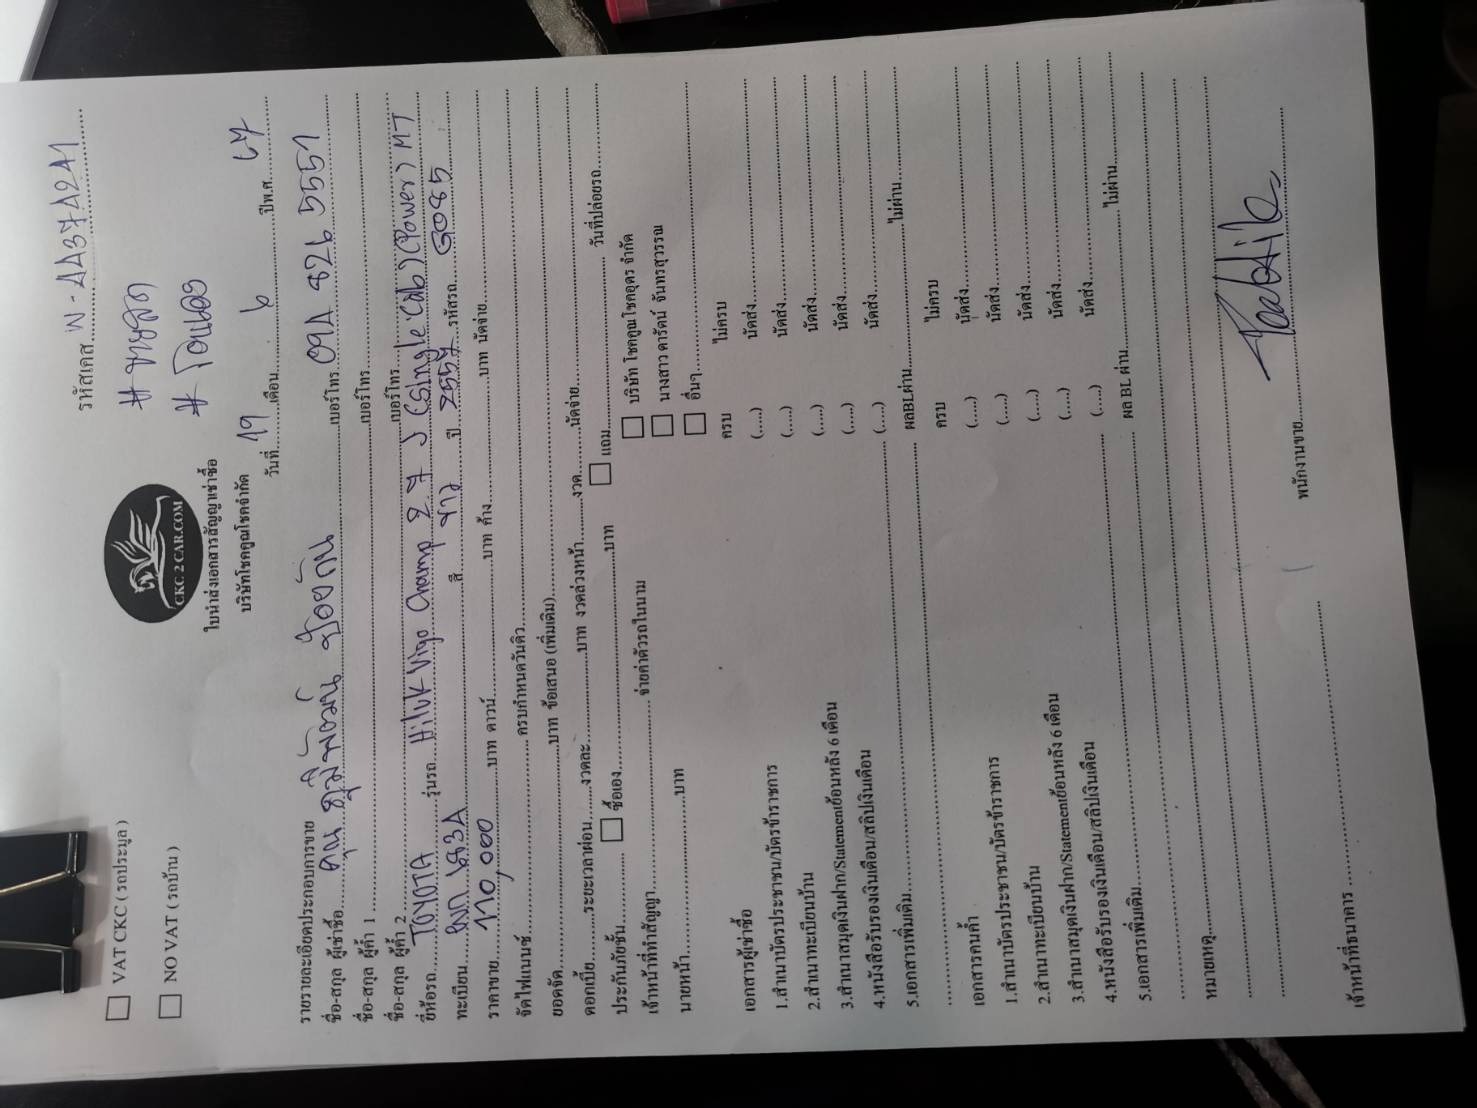 รหัสเคส W-AA37A2A1
VAT CKC ( รถประมูล )
NO VAT ( รถบ้าน )
CKC 2 CAR.COM
# ขายสด
# โอนเอง
ใบนำส่งเอกสารสัญญาเช่าซื้อ
บริษัทโชคคูณโชคจำกัด
วันที่ 19 เดือน 6 ปีพ.ศ. 67
รายรายละเอียดประกอบการขาย
ชื่อ-สกุล ผู้เช่าซื้อ คุณ เบอร์โทร 09A 826 5551
ชื่อ-สกุล ผู้ค้ำ 1 เบอร์โทร
ชื่อ-สกุล ผู้ค้ำ 2 เบอร์โทร
ยี่ห้อรถ TOYOTA รุ่นรถ Hilux Vigo Champ 2.7 J (Single Cab) (Power) MT
ทะเบียน สี ขาว ปี 2557 รหัสรถ G085
ราคาขาย 170,000 บาท ดาวน์ บาท ค้าง บาท นัดจ่าย
จัดไฟแนนซ์ ครบกำหนดวันคิว
ยอดจัด บาท ข้อเสนอ (เพิ่มเติม)
ดอกเบี้ย ระยะเวลาผ่อน งวดละ บาท งวดล่วงหน้า งวด นัดจ่าย
ประกันภัยชั้น ซื้อเอง บาท แถม วันที่ปล่อยรถ
เจ้าหน้าที่ทำสัญญา จ่ายค่าตัวรถในนาม บริษัท โชคคูณโชคอุดร จำกัด
นายหน้า บาท นางสาว ดารัตน์ จันทรสุวรรณ
อื่นๆ
เอกสารผู้เช่าซื้อ ครบ ไม่ครบ
1.สำเนาบัตรประชาชน/บัตรข้าราชการ (.....) นัดส่ง
2.สำเนาทะเบียนบ้าน (.....) นัดส่ง
3.สำเนาสมุดเงินฝาก/Statementย้อนหลัง 6 เดือน (.....) นัดส่ง
4.หนังสือรับรองเงินเดือน/สลิปเงินเดือน (.....) นัดส่ง
5.เอกสารเพิ่มเติม (.....) นัดส่ง
ผลBLผ่าน ไม่ผ่าน
เอกสารคนค้ำ ครบ ไม่ครบ
1.สำเนาบัตรประชาชน/บัตรข้าราชการ (.....) นัดส่ง
2.สำเนาทะเบียนบ้าน (.....) นัดส่ง
3.สำเนาสมุดเงินฝาก/Statementย้อนหลัง 6 เดือน (.....) นัดส่ง
4.หนังสือรับรองเงินเดือน/สลิปเงินเดือน (.....) นัดส่ง
5.เอกสารเพิ่มเติม (.....) นัดส่ง
ผล BL ผ่าน ไม่ผ่าน
หมายเหตุ
พนักงานขาย
เจ้าหน้าที่ธนาคาร